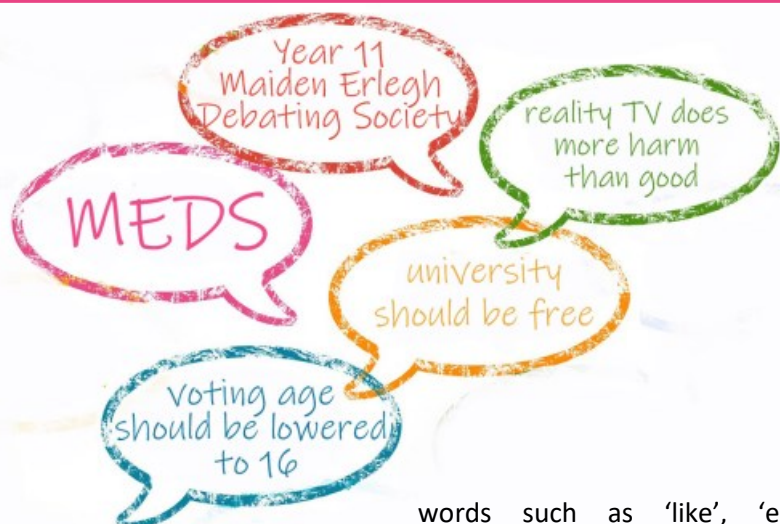 Year 11
Maiden Erlegh
Debating Society
reality TV does
more harm
than good
MEDS
university
should be free
voting age
should be lowered
to 16
words such as 'like', 'e